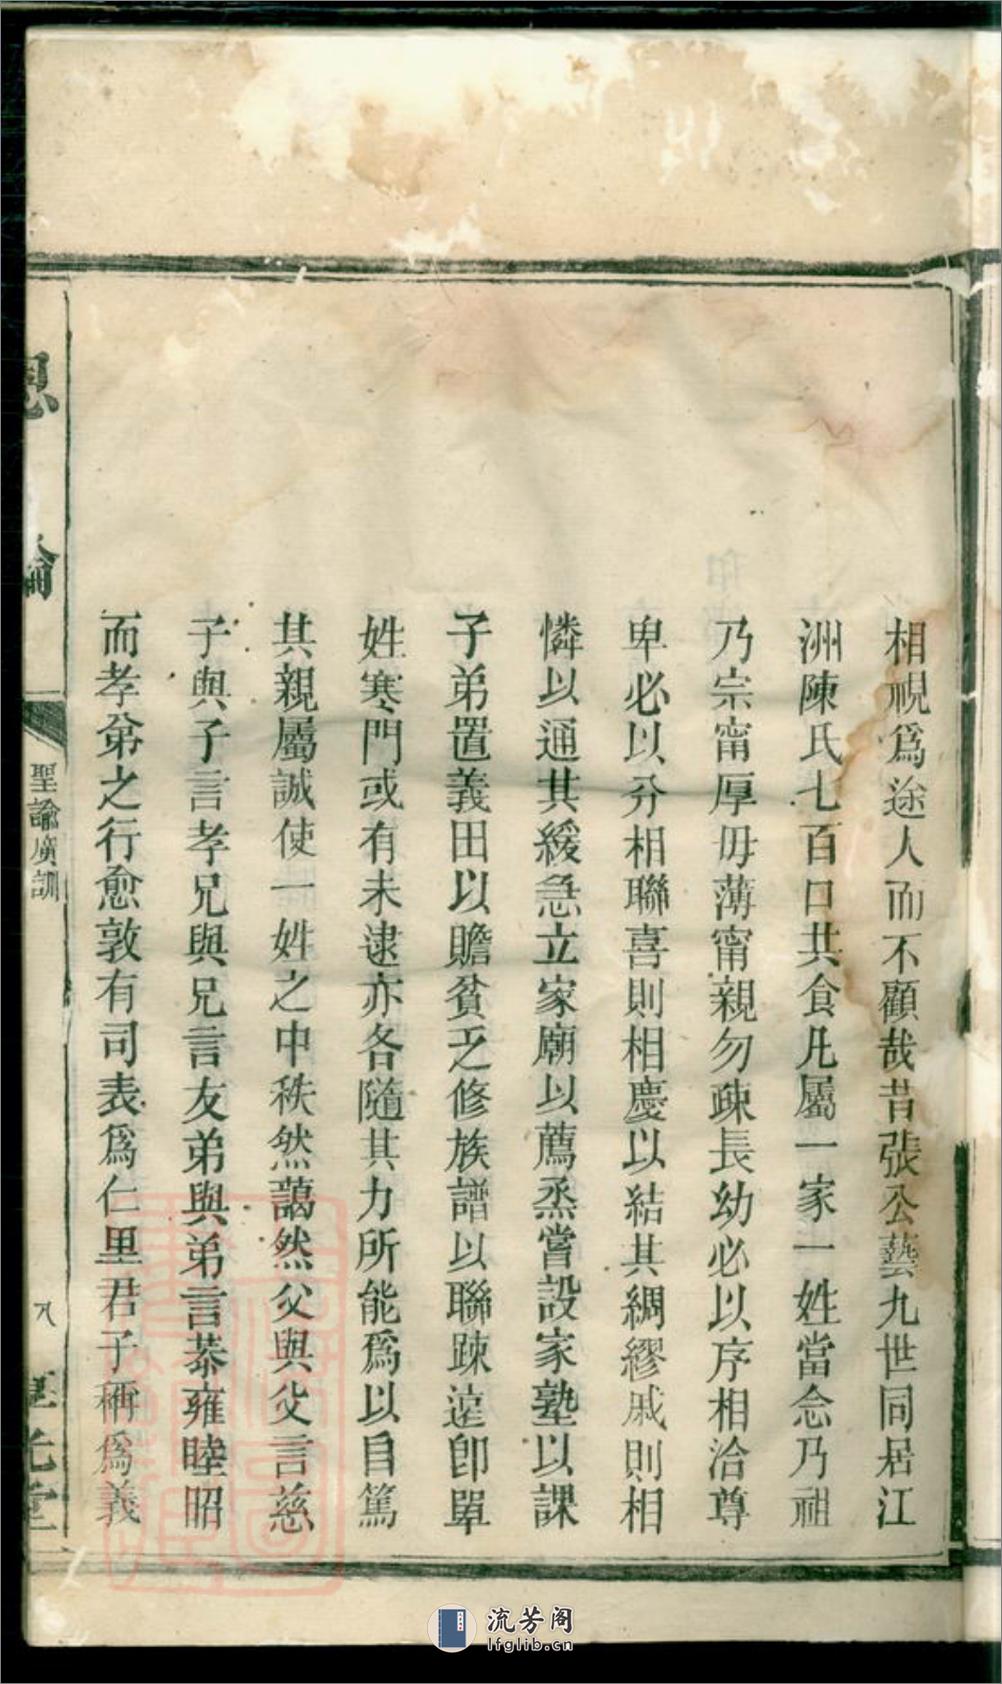 相視爲途人而不顧哉昔張公藝九世同居江
洲陳氏七百口共食凡屬一家一姓當念乃祖
乃宗甯厚毋薄甯親勿疎長幼必以序相洽尊
卑必以分相聯喜則相慶以結其綢繆戚則相
憐以通其緩急立家廟以薦烝嘗設家塾以課
子弟置義田以贍貧乏修族譜以聯疎逺卽單
姓寒門或有未逮亦各隨其力所能爲以自篤
其親屬誠使一姓之中秩然藹然父與父言慈
子與子言孝兄與兄言友弟與弟言恭雍睦昭
而孝弟之行愈敦有司表爲仁里君子稱爲義
恩
諭
聖諭廣訓
八
流芳阁
lfglib.cn